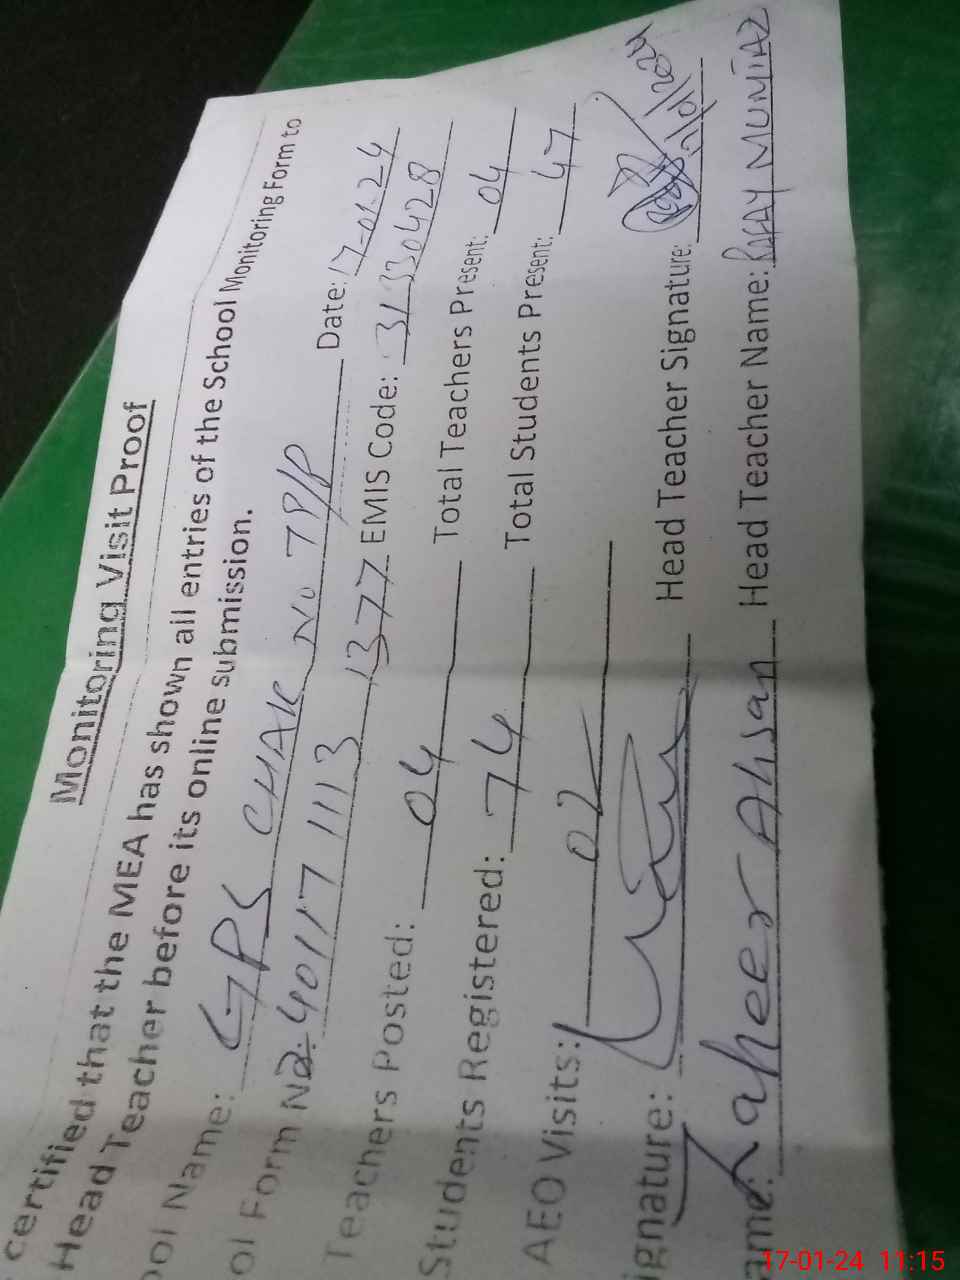 Monitoring Visit Proof
certified that the MEA has shown all entries of the School Monitoring Form to
Head Teacher before its online submission.
ool Name: GPS CHAK No 7P/P Date: 17-01-24
ol Form No. 40117 1113 1377 EMIS Code: 31330428
Teachers Posted: 04 Total Teachers Present: 04
Students Registered: 74 Total Students Present: 47
AEO Visits: 02
ignature: Head Teacher Signature:
ame: Zaheer Ahsan Head Teacher Name: RAFAY MUMTAZ
17-01-24 11:15